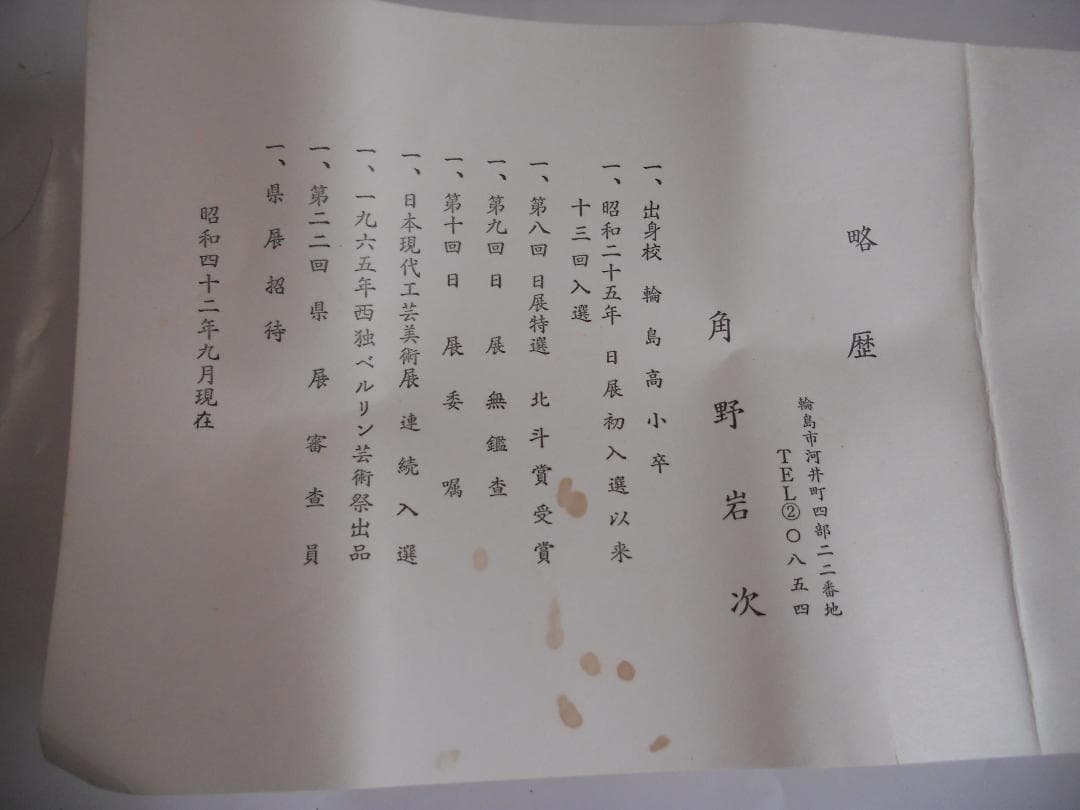 略歴
輪島市河井町四部二二番地
TEL②〇八五四
角野岩次
一、出身校 輪島高小卒
一、昭和二十五年 日展初入選以来
十三回入選
一、第八回日展特選 北斗賞受賞
一、第九回日展無鑑査
一、第十回日展委嘱
一、日本現代工芸美術展連続入選
一、一九六五年西独ベルリン芸術祭出品
一、第二二回県展審査員
一、県展招待
昭和四十二年九月現在